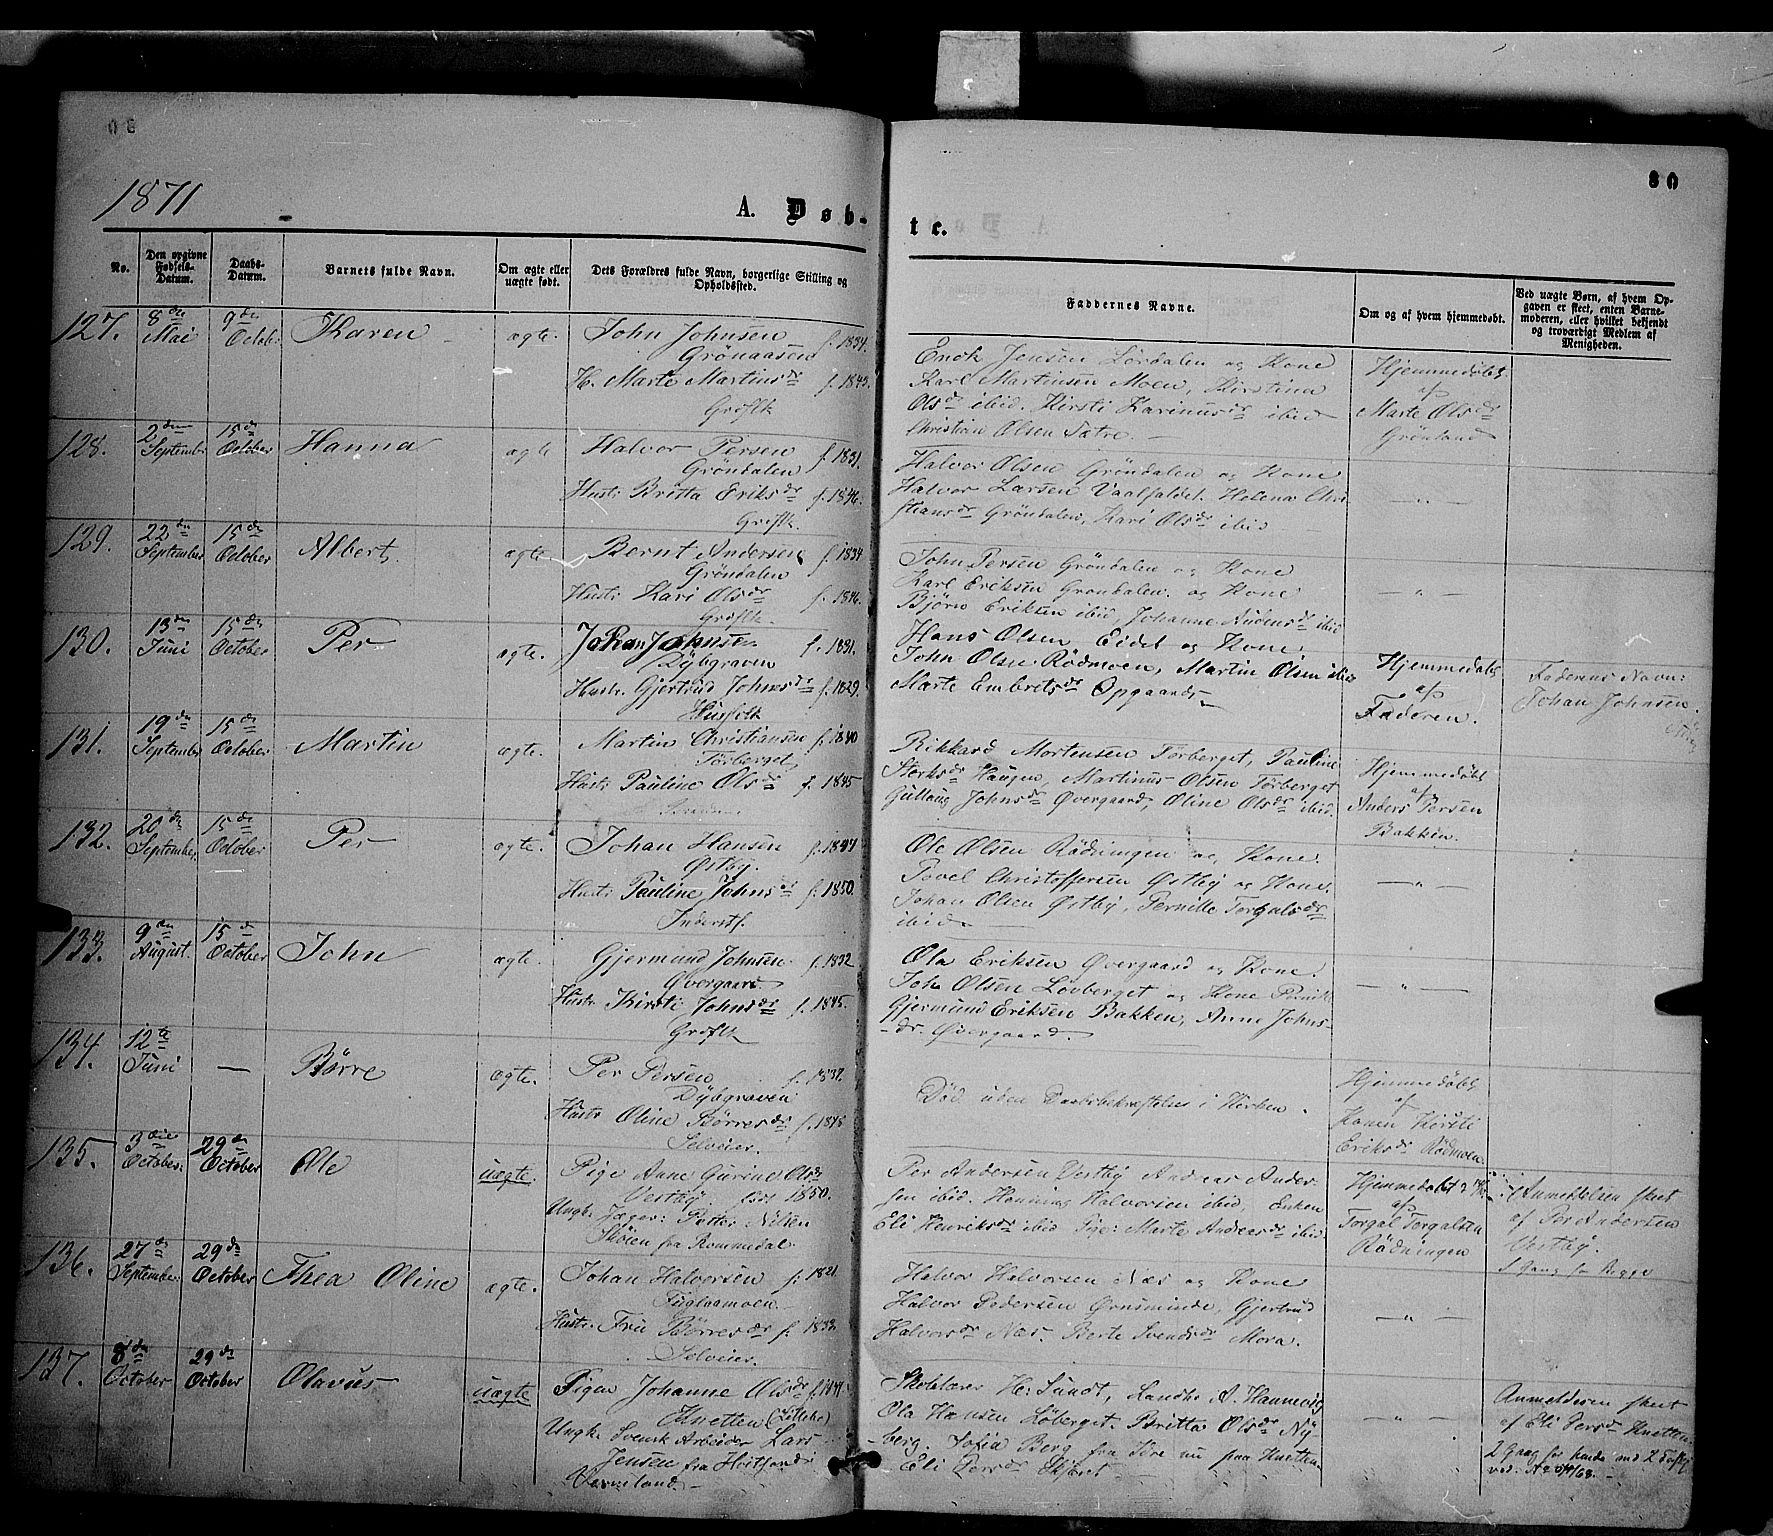 1871
A. Døb-
te.
80
No.
Den opgivne Fødsels-Datum.
Daabs-Datum.
Barnets fulde Navn.
Om ægte eller uægte født.
Dets Forældres fulde Navn, borgerlige Stilling og Opholdssted.
Faddernes Navne.
Om og af hvem hjemmedøbt.
Ved uægte Børn, af hvem Opgaven er skeet, enten Barnemoderen, eller hvilket bekjendt og troværdigt Medlem af Menigheden.
127. 8de Mai 9de Octob. Karen ægte.
John Johnsen f. 1834.
Grönaasen
H. Marte Martinsdr f. 1843.
Enok Jensen Lördalen og Kone
Karl Martinsen Moen, Kirstina
Olsdr ibid. Kirsti Karinusdr ibid
Christian Olsen Sætre.
Hjemmedöbt
af
Marte Olsdr
Grönland
128. 2den September 15de October Hanna ægte
Halvor Persen f. 1831.
Gröndalen
Hustr Britta Eriksdr f. 1846.
Halvor Olsen Gröndalen og Kone
Halvor Larsen Vaalfaldet. Helena Chri
stiansdr Gröndalen, Kari Olsdr ibid
— " —
129. 22de September 15de October Albert. ægte
Bernt Andersen f. 1834
Gröndalen
Hustr Kari Olsdr f. 1846.
John Persen Gröndalen og Kone
Karl Eriksen Gröndalen. og Kone
Björn Eriksen ibid, Johanne Audensdr ibid
— " —
130. 13de Juni 15de October Per ægte.
Johan Johnsen f. 1831.
Dybgraven
Hustr. Gjertrud Johnsdr f. 1829.
Husfolk
Hans Olsen Eidet og Kone.
John Olsen Rödmoen, Martin Olsen ibid
Marte Embretsdr Opgaarde
Hjemmedöbt
af
Faderen.
Faderens Navn:
Johan Johnsen.
131. 19de September 15de October Martin ægte.
Martin Christiansen f. 1840
Törberget
Hustr Pauline Olsdr f. 1845
Rikkard Mortensen Törberget, Pauline
Sterksdr Haugen, Martinus Olsen Törberget
Gulloug Johnsdr Øvergaard, Oline Olsdr ibid.
Hjemmedöbt
af
Anders Persen
Bakken.
132. 20de September 15de October Per ægte.
Johan Hansen f. 1847
Østby
Hustr Pauline Johnsdr f. 1850.
Inderstf.
Ole Olsen Rödningen og Kone.
Povel Christoffersen Østby og Kone.
Johan Olsen Østby, Pernille Torgalsdr
ibid
— " —
133. 9de August. 15de October John ægte.
Gjermund Johnsen f. 1832
Øvergaard.
Hustr Kirsti Johnsdr f. 1845.
Ola Eriksen Øvergaard og Kone.
Joh. Olsen Lövberget og Kone
Gjermund Eriksen Bakken, Anne Johns-
dr. Øvergaard.
— " —
134. 12te Juni — Börre ægte.
Per Persen f. 1837.
Dybgraven
Hustr Oline Börresdr f. 1848
Selveier.
Död uden Daabsbekræftelse i Kirken.
Hjemmedöbt
af
Konen Kirsti
Eriksdr Rödmoen.
135. 3die October. 29de October Ole uægte.
Pige Anne Gurine Olsdr
Vestby föd 1850.
Ungk. Jæger Petter Nilsen
Skoien fra Rommedal.
Per Andersen Vestby Andreas Ander-
sen ibid. Henning Halvorsen ibid, Enken
Eli Henriksdr ibid Pige Marte Andersdr ibid
Hjemmedöbt
af
Torgal Torgalsen
Rödningen
Anmeldelsen skeet
af Per Andersen
Vestby.
1 Gang for Begge
136. 27de September 29de October Thea Oline ægte.
Johan Halvorsen f. 1821
Fuglaamoen
Hustr. Fru Börresdr f. 1833
Selveier.
Halvor Halvorsen Næs og Kone
Halvor Pedersen Ørnsminde, Gjertrud
Halvorsdr Næs. Berte Svendsdr Mora.
— " —
137. 8de October 29de October Olavus uægte
Pigen Johanne Olsdr
Knetten
Ungk. Svensk Arbeider Lars
Jensen fra
Vermland.
Skolelærer H. Sundt, Landhd. A. Hannevig
Ola Hansen Löberget. Britta Olsdr Ny
berg. Sofia Berg fra Idre nu paa Knetten
Eli Persdr
— " —
Anmeldelsen skeet
af Eli Persdr Knetten
2 Gang for hende med